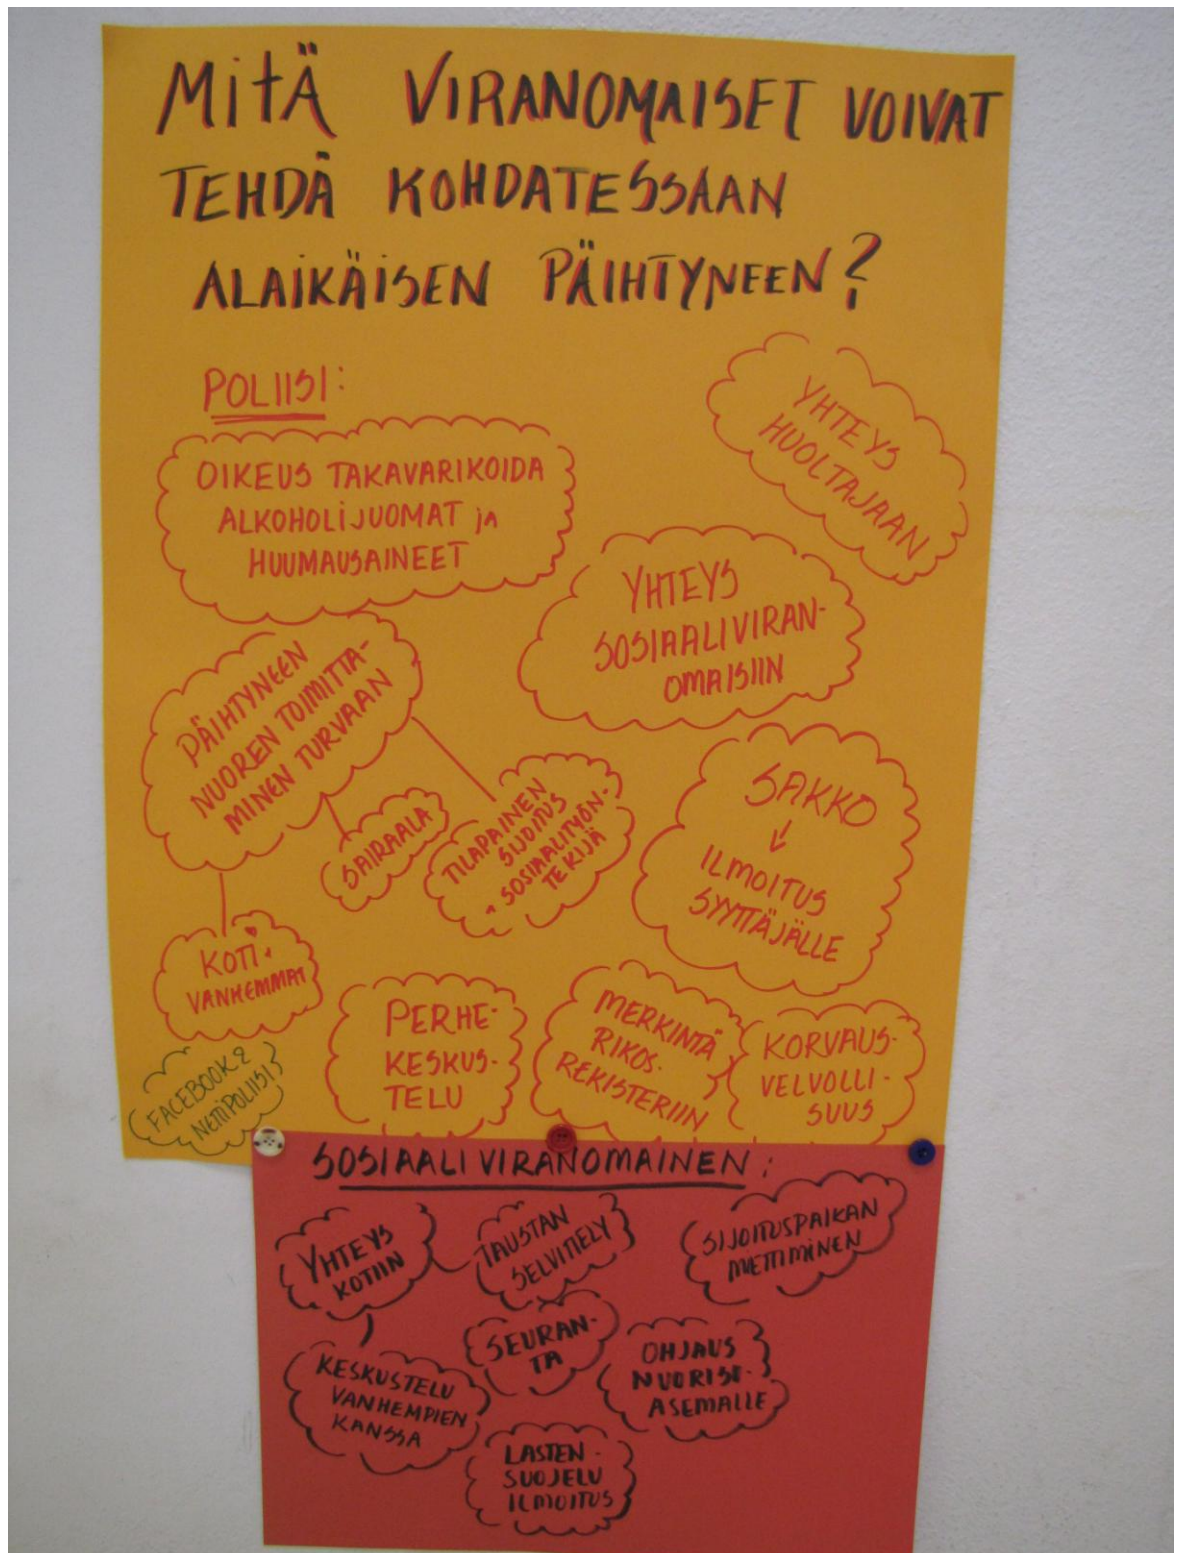 MITÄ VIRANOMAISET VOIVAT
TEHDÄ KOHDATESSAAN
ALAIKÄISEN PÄIHTYNEEN?
POLIISI:
OIKEUS TAKAVARIKOIDA
ALKOHOLIJUOMAT ja
HUUMAUSAINEET
YHTEYS
HUOLTAJAAN
YHTEYS
SOSIAALIVIRAN-
OMAISIIN
PÄIHTYNEEN
NUOREN TOIMITTA-
MINEN TURVAAN
SAIRAALA
TILAPAINEN
SIJOITUS
SOSIAALITYÖN-
TEKIJÄ
SAKKO
ILMOITUS
SYYTTÄJÄLLE
KOTI
VANHEMMAT
PERHE-
KESKUS-
TELU
MERKINTÄ
RIKOS-
REKISTERIIN
KORVAUS-
VELVOLLI-
SUUS
FACEBOOK &
NETTIPOLIISI
SOSIAALIVIRANOMAINEN:
YHTEYS
KOTIIN
TAUSTAN
SELVITTELY
SIJOITUSPAIKAN
MIETTIMINEN
SEURAN-
TA
OHJAUS
NUORISO-
ASEMALLE
KESKUSTELU
VANHEMPIEN
KANSSA
LASTEN-
SUOJELU
ILMOITUS